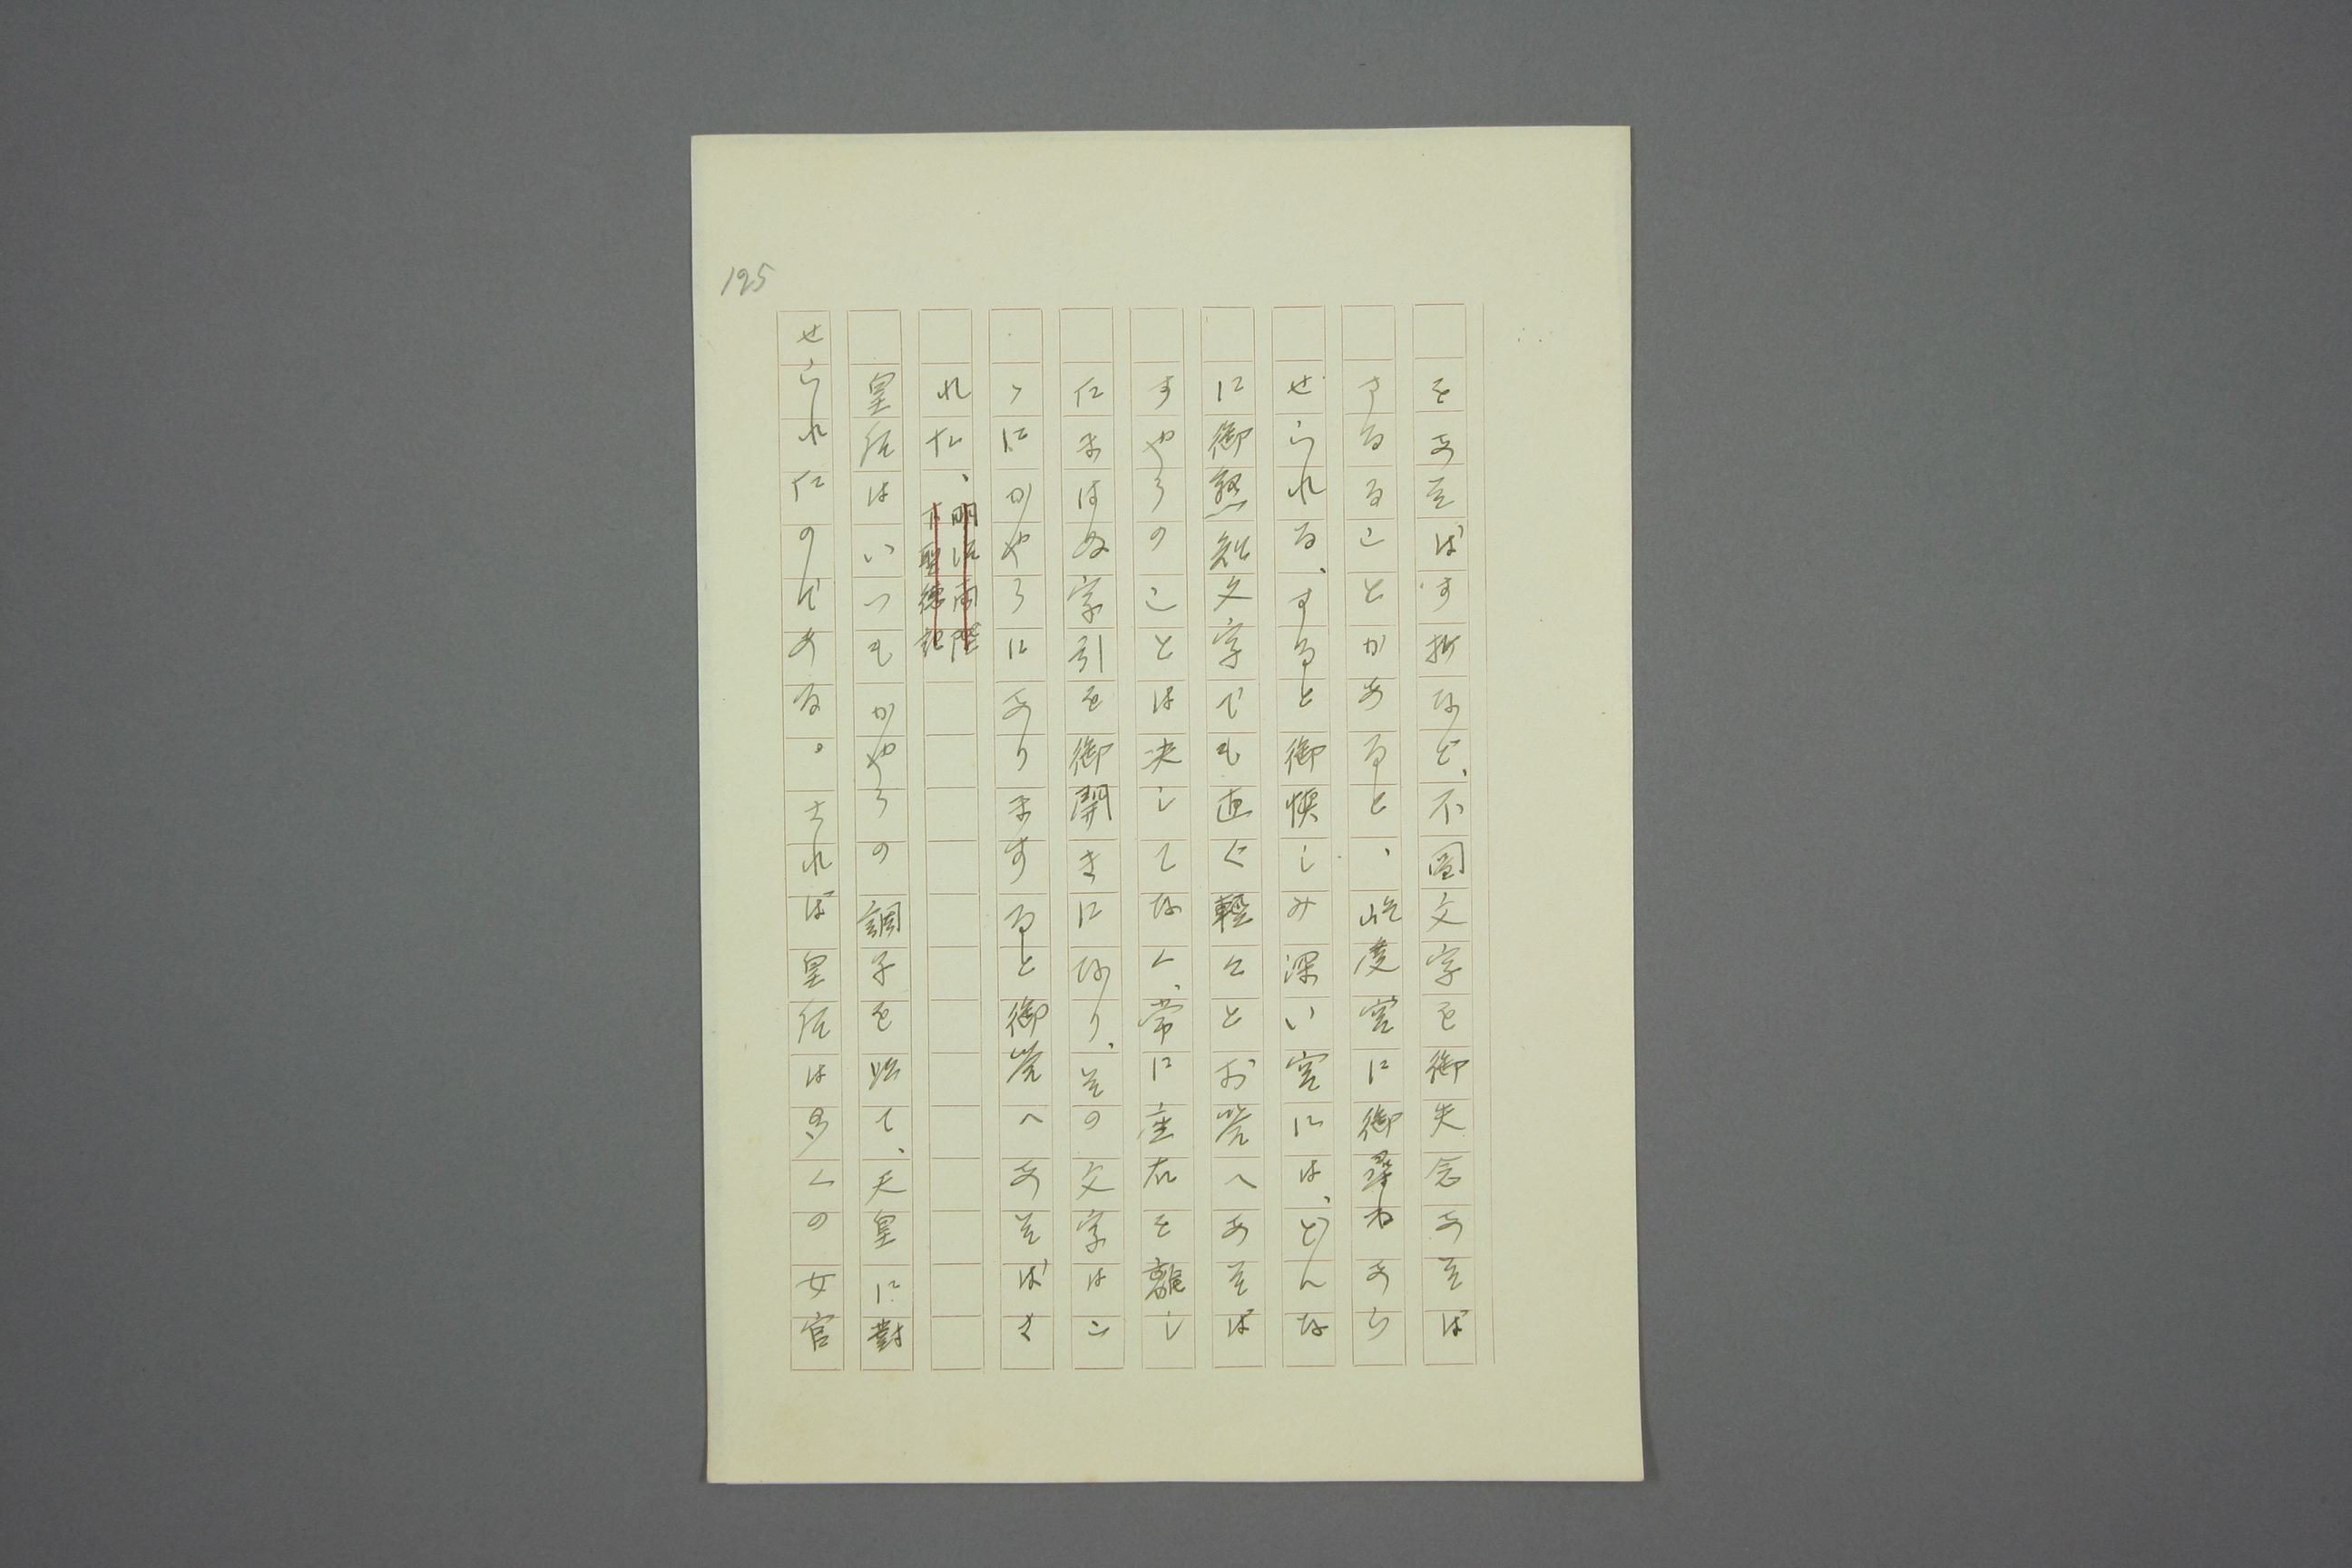 125
をあそばす折など、不圖文字を御失念あそば
さるることかあると、屹度宮に御尋ねあら
せられる、すると御愼しみ深い宮には、どんな
に御熟知文字でも直ぐ輕々とお答へあそば
すやうのことは決してなく、常に座右を離し
たまはぬ字引を御開きになり、その文字はこ
ゝにかやうにありますると御答へあそばさ
れた、
明治両陛
下聖徳記
皇后はいつもかやうの調子を以て、天皇に對
せられたのである。されば皇后は多くの女官